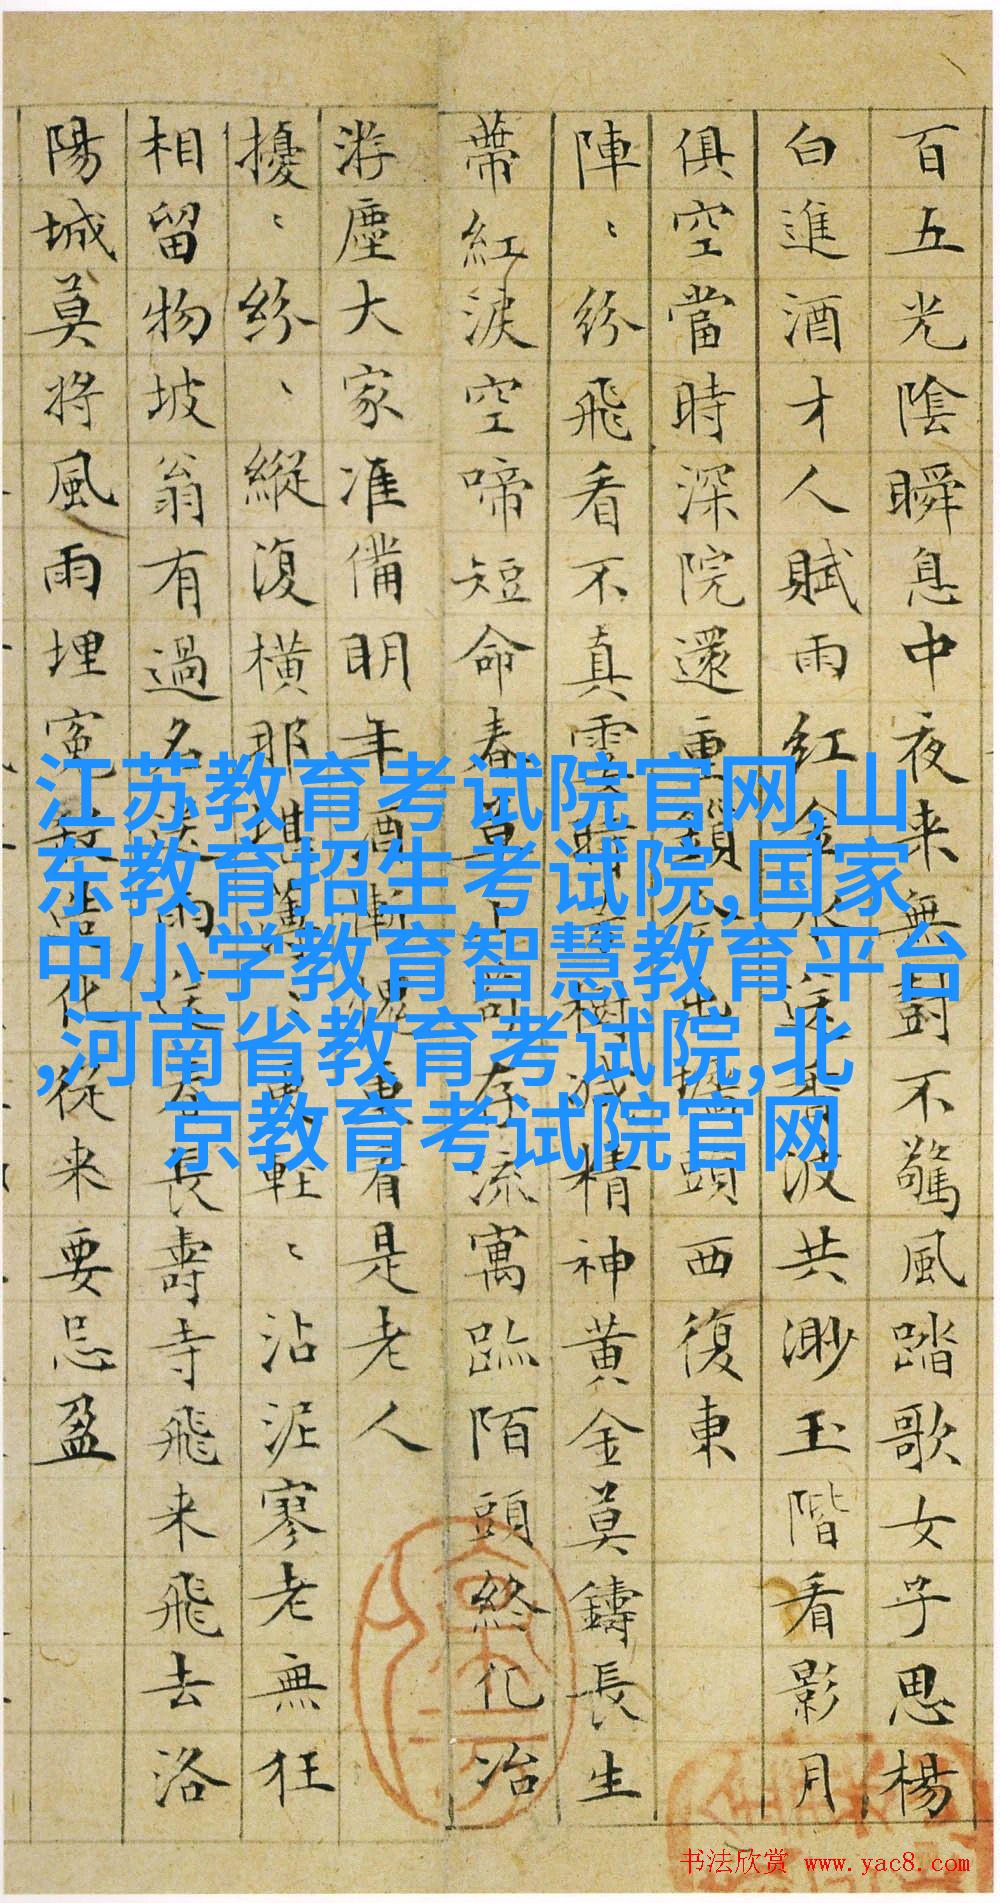 百五光陰瞬息中夜来無對不驚風踏歌女子思楊
白進酒才人賦雨紅金人送香波共渺玉階看影月
俱空當時深院還重鎖墻頭西復東
陣〻紛飛看不真雲時樹減精神黄金莫鑄長生
蒂紅淚空啼短命春草尚存流寓跡陌頭終化冶
游塵大家准備明年酒慚愧重看是老人
擾〻紛〻縱復橫那堪薄〻更輕〻沾泥寥老無狂
相留物坡翁有過名送雨送春長壽寺飛来飛去洛
陽城莫將風雨埋冤殺造化從来要忌盈
江苏教育考试院官网,山
东教育招生考试院,国家
中小学教育智慧教育平台
,河南省教育考试院,北
京教育考试院官网
书法欣赏 www.yac8.com